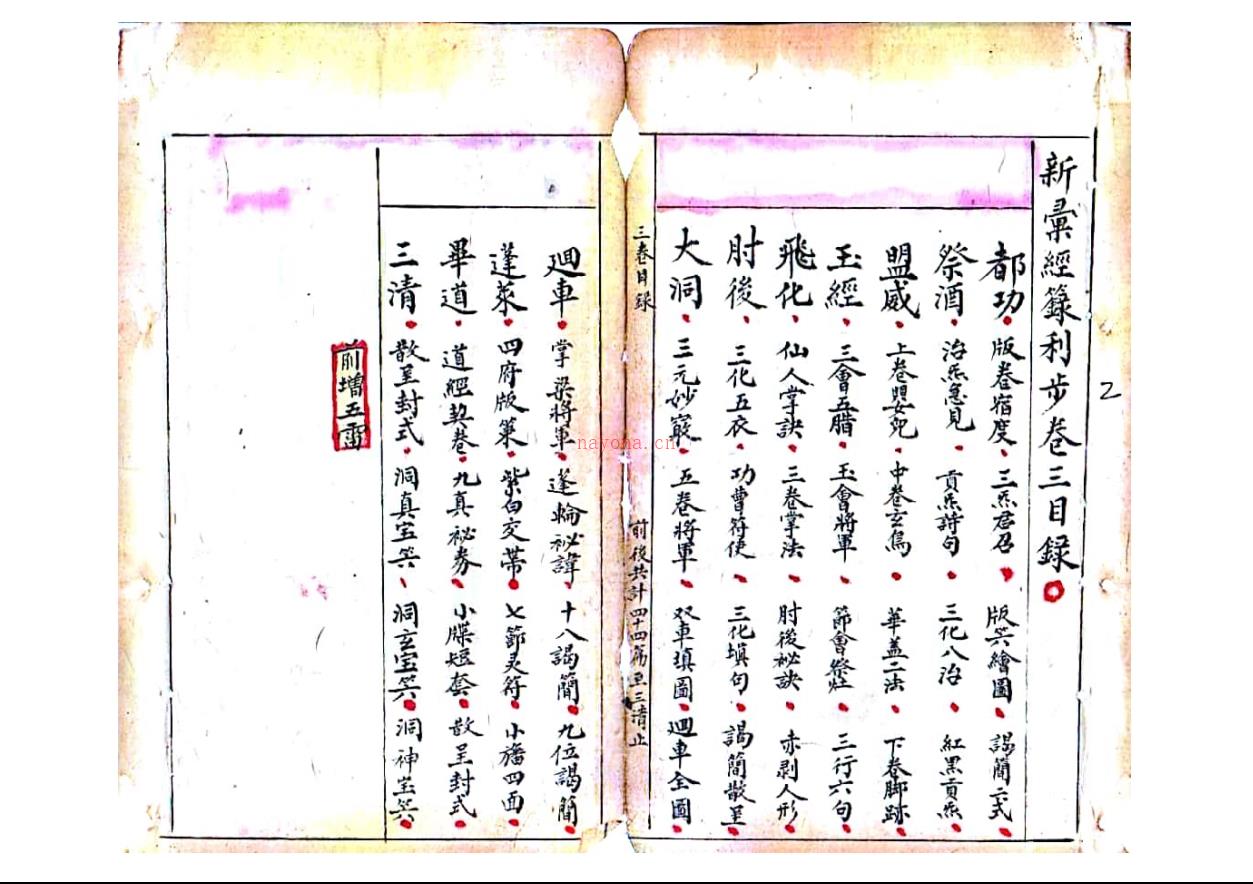 新彙經籙利步卷三目録
都功 版卷宿度 三炁君召 版筴繪圖 謁簡二式
祭酒 治炁急見 貢炁詩句 三化八治 紅黑貢炁
盟威 上卷嬰兒 中卷玄鳥 華盖二法 下卷脚跡
玉經 三會五腊 玉會將軍 節會祭 三行六句
飛化 仙人掌訣 三卷掌法 肘後祕訣 赤剥人形
肘後 三化五衣 功曹符使 三化填句 謁簡散呈
大洞 三元妙 五卷將軍 双車填圖 廻車全圖
三卷目録
前後共計四十四篇至三清止
廻車 掌梁將軍 蓬輪祕諱 十八謁簡 九位謁簡
蓬萊 四府版策 紫白交帶 七節灵符 小旛四面
畢道 道經契卷 九真祕券 小牒短套 散呈封式
三清 散呈封式 洞真宝筴 洞玄宝筴 洞神宝筴
前增五雷
2
nayona.cn